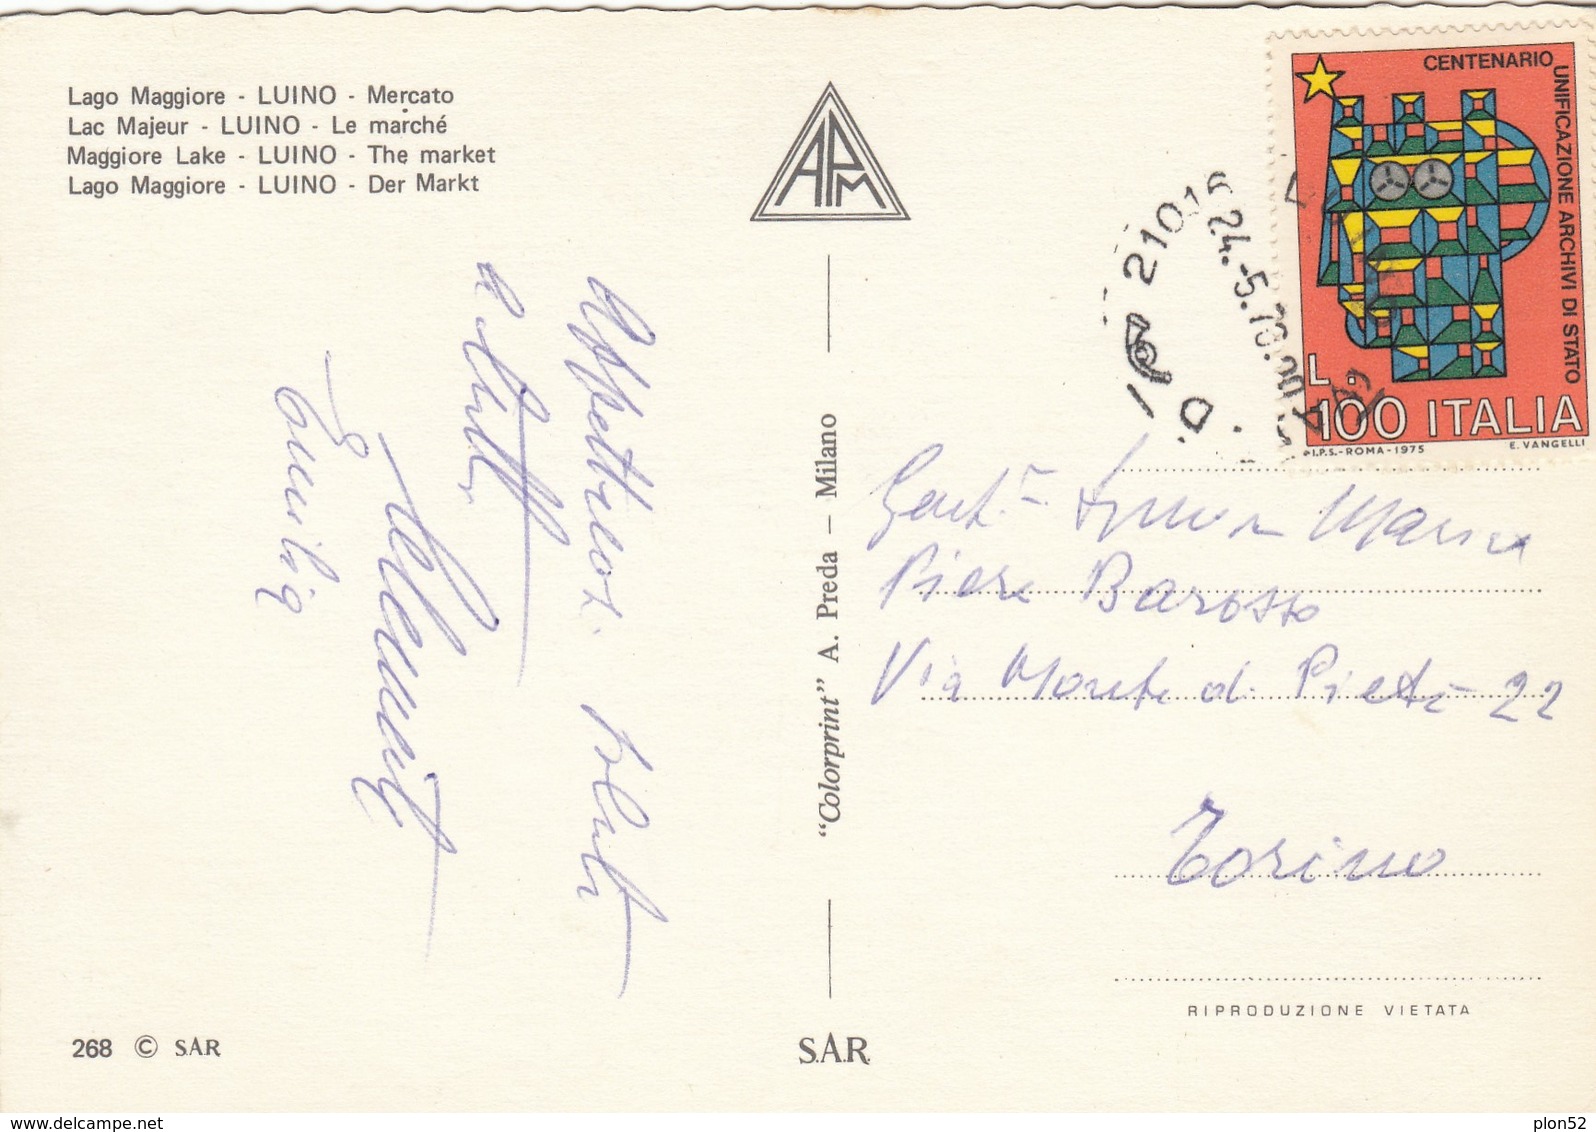 Lago Maggiore - LUINO - Mercato
Lac Majeur - LUINO - Le marché
Maggiore Lake - LUINO - The market
Lago Maggiore - LUINO - Der Markt
APM
CENTENARIO
UNIFICAZIONE ARCHIVI DI STATO
L. 100 ITALIA
I.P.S.-ROMA-1975 E. VANGELLI
21016
24.-5.
Affettuosi saluti
a tutti
Clementi
Emilia
"Colorprint" A. Preda - Milano
Gent.
Piera Barosso
Via Monte di Pietà 22
Torino
RIPRODUZIONE VIETATA
268 © SAR
S.A.R.
plon52